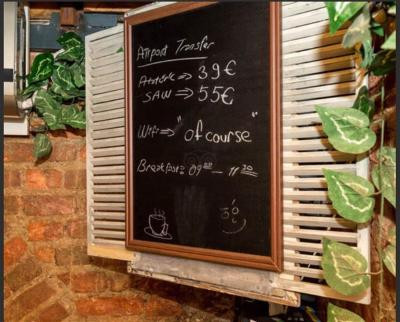 Airport Transfer
Atatürk => 39€
SAW => 55€
Wifi => "of course"
Breakfast: 09⁰⁰ - 11³⁰